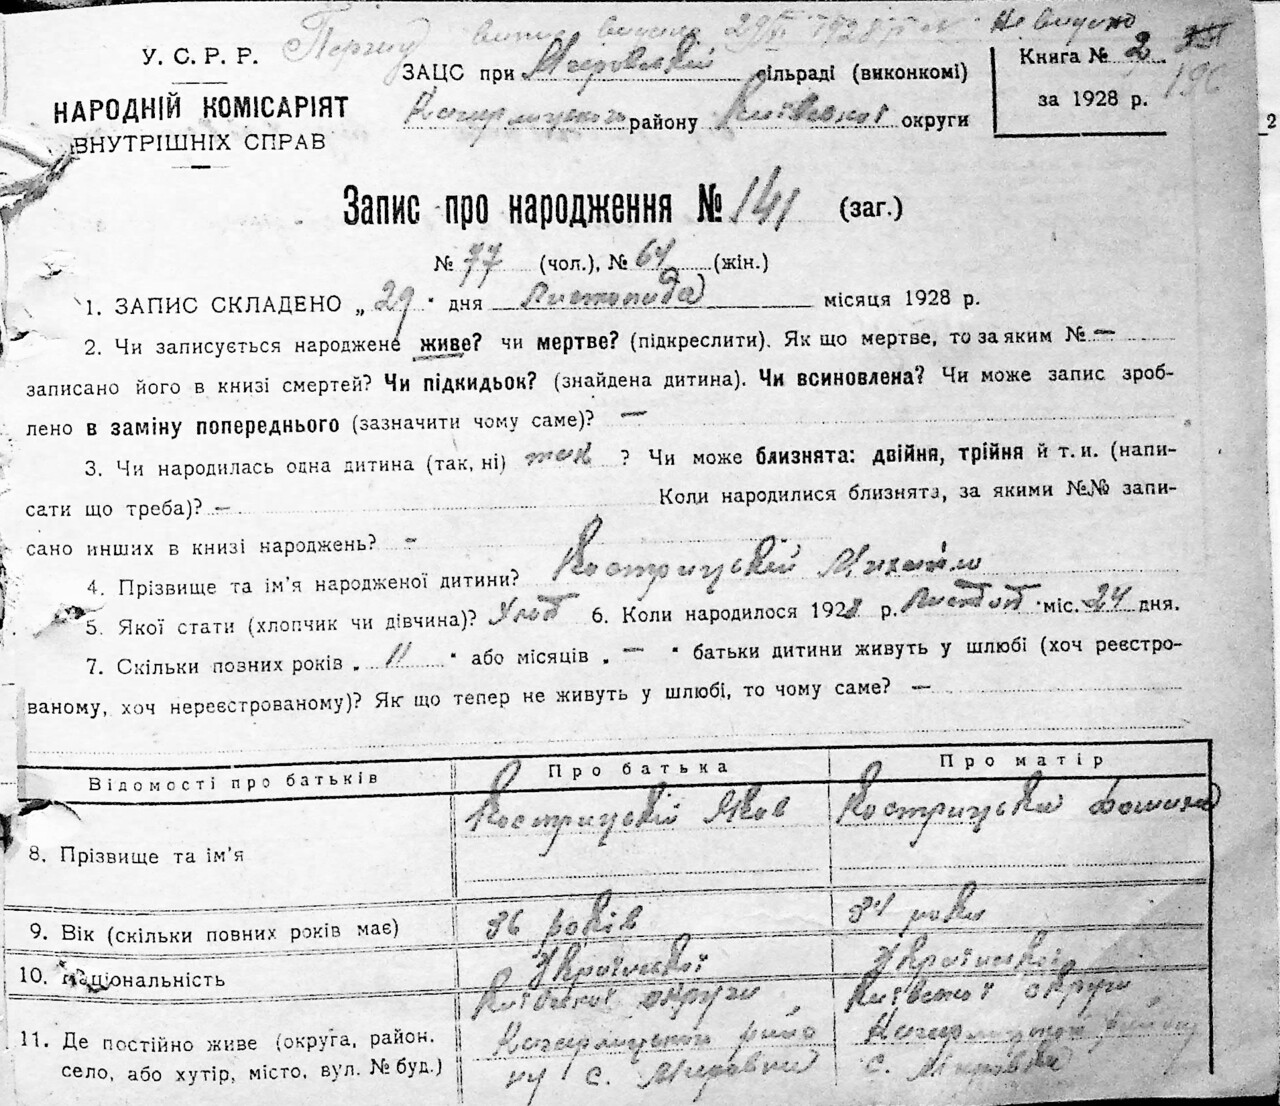 випис видано 29/XI 1928 р. Не видано
У. С. Р. Р.
НАРОДНІЙ КОМІСАРІЯТ
ВНУТРІШНІХ СПРАВ
ЗАЦС при Мировській сільраді (виконкомі)
Кагарлицького району Київської округи
Книга № 2.
за 1928 р.
196
2
Запис про народження № 141 (заг.)
№ 77 (чол.), № 64 (жін.)
1. ЗАПИС СКЛАДЕНО „ 29 " дня Листопада місяця 1928 р.
2. Чи записується народжене живе? чи мертве? (підкреслити). Як що мертве, то за яким № —
записано його в книзі смертей? Чи підкидьок? (знайдена дитина). Чи всиновлена? Чи може запис зроб-
лено в заміну попереднього (зазначити чому саме)? —
3. Чи народилась одна дитина (так, ні) так ? Чи може близнята: двійня, трійня й т. и. (напи-
сати що треба)? — Коли народилися близнята, за якими №№ запи-
сано инших в книзі народжень? -
4. Прізвище та ім'я народженої дитини? Кострицький Михайло
5. Якої статі (хлопчик чи дівчина)? Хлоп 6. Коли народилося 1928 р. Листоп міс. 24 дня.
7. Скільки повних років „ 11 " або місяців „ — " батьки дитини живуть у шлюбі (хоч реєстро-
ваному, хоч нереєстрованому)? Як що тепер не живуть у шлюбі, то чому саме? —
Відомості про батьків Про батька Про матір
8. Прізвище та ім'я Кострицький Яков Кострицьки
9. Вік (скільки повних років має) 36 років 34 роки
10. Національність Української Української
11. Де постійно живе (округа, район, село, або хутір, місто, вул. № буд.)
Київської округи Київської округи
Кагарлицького райо Кагарлицького району
ну с. Мировки с. Мировка